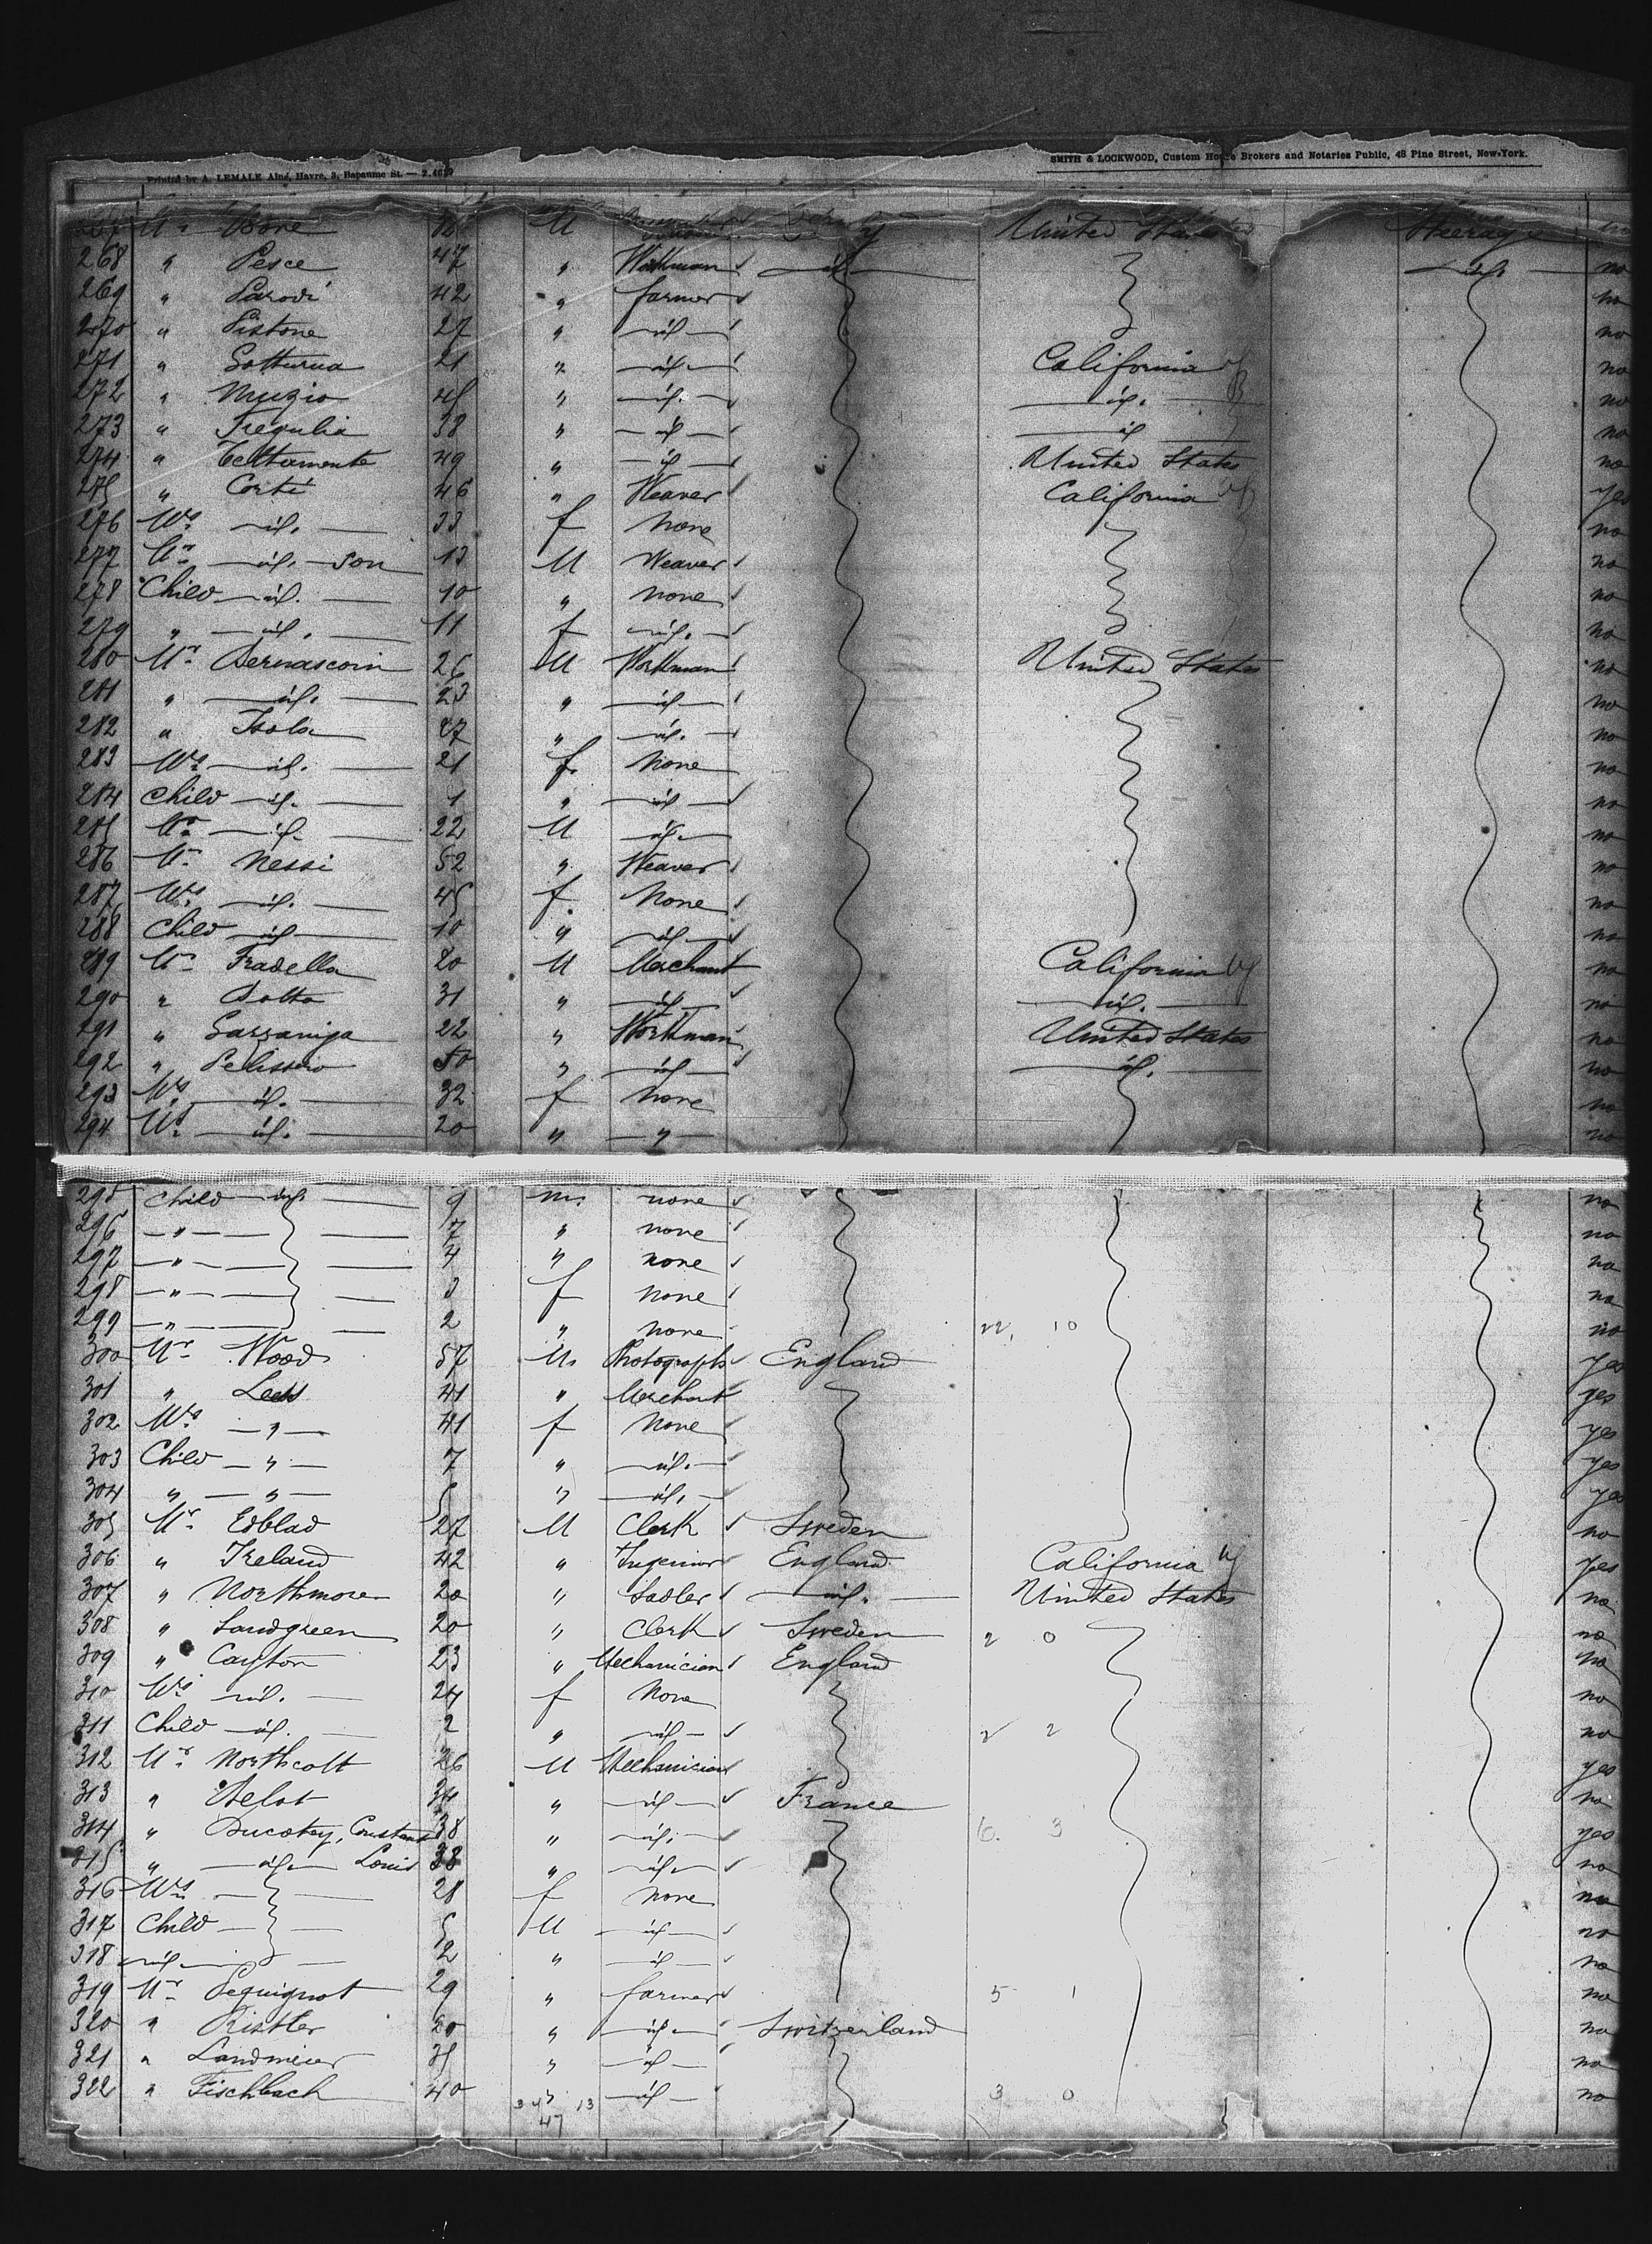 Printed by A. LEMALE Ainé, Havre, 3, Bapaume St. —
SMITH & LOCKWOOD, Custom House Brokers and Notaries Public, 48 Pine Street, New-York.
Mr. M United States Steerage
268 " Pesce 47 " Workman id. id. no
269 " Parodi 42 " farmer no
270 " Pistone 27 " id. no
271 " 21 " id. California no
272 " Muzio 45 " id. id. no
273 " 38 " id. id. no
274 " 49 " id. United States no
275 " Corti 46 " Weaver California yes
276 Mrs id. 33 f None no
277 Mr. id. Son 13 M Weaver no
278 Child id. 10 " none no
279 " id. 11 f id. no
280 Mr. 26 M Workman United States no
281 " id. 23 " id. no
282 " Isola 27 " id. no
283 Mrs id. 21 f. None no
284 Child id. 1 " id. no
285 Mr. id. 22 M id. no
286 Mr. Nessi 52 " Weaver no
287 Mrs id. 45 f. None no
288 Child id. 10 " id. no
289 Mr. Fradella 20 M Merchant California no
290 " 31 " id. id. no
291 " Gazzaniga 22 " Workman United States no
292 " Pelissero 50 " id. id. no
293 Mrs id. 32 f None no
294 id. 20 " " no
295 Child id. 9 m. none no
296 " 7 " none no
297 " 4 " none no
298 " 3 f none no
299 " 2 " none 22, 10 no
300 Mr. Wood 57 M. Photograph England yes
301 " 41 " Merchant yes
302 Mrs " 41 f None yes
303 Child " 7 " id. yes
304 " " " id. yes
305 Mr. Edblad 27 M Clerk Sweden no
306 " Ireland 42 " Ingenior England California yes
307 " Northmore 20 " Sadler id. United States no
308 " Landgreen 20 " Clerk Sweden 2 0 no
309 " 23 " Mechanician England no
310 Mrs id. 24 f None no
311 Child id. 2 " id. 2 2 no
312 Mr. Northcott 26 M Mechanician yes
313 " Belot 34 " id. France no
314 " Ducotey, Constant 38 " id. 6. 3 yes
315 " id. Louis 38 " id. no
316 Mrs 28 f None no
317 Child 5 M id. no
318 id. 2 " id. no
319 Mr. Pequignot 29 " farmer 5 1 no
320 " Ristler 20 " id. Switzerland no
321 " Landmeier " id. no
322 " Fischbach 40 " id. 3 0 no
13
47